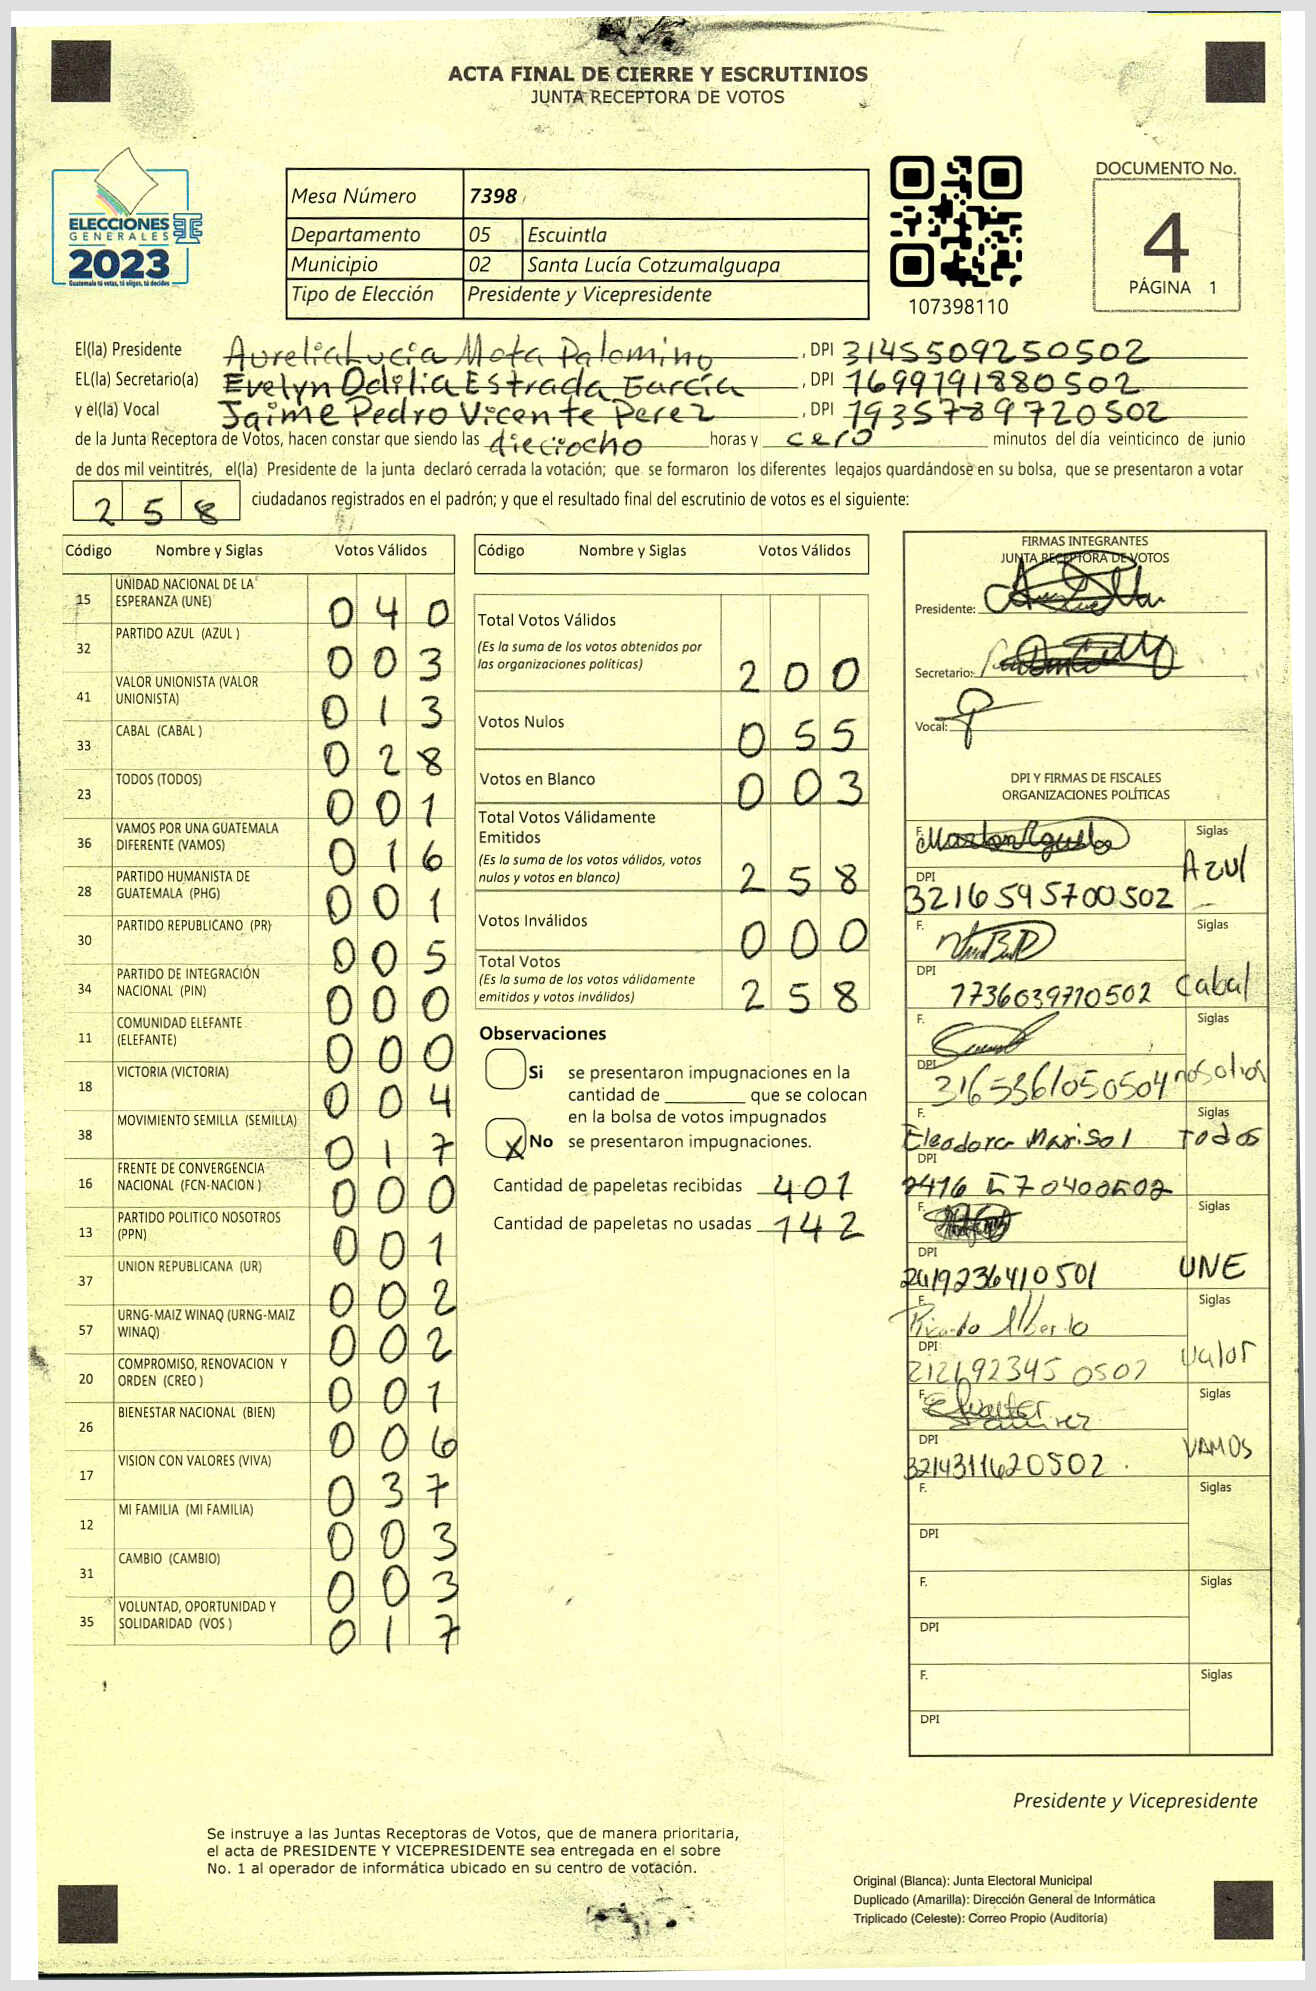 ACTA FINAL DE CIERRE Y ESCRUTINIOS
JUNTA RECEPTORA DE VOTOS
ELECCIONES
GENERALES
2023
Guatemala tú votas, tú eliges, tú decides
Mesa Número 7398
Departamento 05 Escuintla
Municipio 02 Santa Lucía Cotzumalguapa
Tipo de Elección Presidente y Vicepresidente
107398110
DOCUMENTO No.
4
PÁGINA 1
El(la) Presidente Aurelia Lucia Mota Palomino, DPI 3145509250502
EL(la) Secretario(a) Evelyn Odilia Estrada García, DPI 1699191880502
y el(la) Vocal Jaime Pedro Vicente Perez, DPI 1935789720502
de la Junta Receptora de Votos, hacen constar que siendo las dieciocho horas y cero minutos del día veinticinco de junio
de dos mil veintitrés, el(la) Presidente de la junta declaró cerrada la votación; que se formaron los diferentes legajos quardándose en su bolsa, que se presentaron a votar
258 ciudadanos registrados en el padrón; y que el resultado final del escrutinio de votos es el siguiente:
Código Nombre y Siglas Votos Válidos
15 UNIDAD NACIONAL DE LA ESPERANZA (UNE) 040
32 PARTIDO AZUL (AZUL ) 003
41 VALOR UNIONISTA (VALOR UNIONISTA) 013
33 CABAL (CABAL ) 028
23 TODOS (TODOS) 001
36 VAMOS POR UNA GUATEMALA DIFERENTE (VAMOS) 016
28 PARTIDO HUMANISTA DE GUATEMALA (PHG) 001
30 PARTIDO REPUBLICANO (PR) 005
34 PARTIDO DE INTEGRACIÓN NACIONAL (PIN) 000
11 COMUNIDAD ELEFANTE (ELEFANTE) 000
18 VICTORIA (VICTORIA) 004
38 MOVIMIENTO SEMILLA (SEMILLA) 017
16 FRENTE DE CONVERGENCIA NACIONAL (FCN-NACION ) 000
13 PARTIDO POLITICO NOSOTROS (PPN) 001
37 UNION REPUBLICANA (UR) 002
57 URNG-MAIZ WINAQ (URNG-MAIZ WINAQ) 002
20 COMPROMISO, RENOVACION Y ORDEN (CREO ) 001
26 BIENESTAR NACIONAL (BIEN) 006
17 VISION CON VALORES (VIVA) 037
12 MI FAMILIA (MI FAMILIA) 003
31 CAMBIO (CAMBIO) 003
35 VOLUNTAD, OPORTUNIDAD Y SOLIDARIDAD (VOS ) 017
Código Nombre y Siglas Votos Válidos
Total Votos Válidos
(Es la suma de los votos obtenidos por
las organizaciones políticas) 200
Votos Nulos 055
Votos en Blanco 003
Total Votos Válidamente
Emitidos
(Es la suma de los votos válidos, votos
nulos y votos en blanco) 258
Votos Inválidos 000
Total Votos
(Es la suma de los votos válidamente
emitidos y votos inválidos) 258
Observaciones
Si se presentaron impugnaciones en la
cantidad de ________ que se colocan
en la bolsa de votos impugnados
X No se presentaron impugnaciones.
Cantidad de papeletas recibidas 401
Cantidad de papeletas no usadas 142
FIRMAS INTEGRANTES
JUNTA RECEPTORA DE VOTOS
Presidente:
Secretario:
Vocal:
DPI Y FIRMAS DE FISCALES
ORGANIZACIONES POLÍTICAS
F. Siglas Azul
DPI 3216595700502
F. Siglas Cabal
DPI 1736039710502
F. Siglas nosotros
DPI 3165361050504
F. Eleodora Marisol Siglas Todos
DPI
F. Siglas UNE
DPI 2419236410501
F. Ricardo Alberto Siglas Valor
DPI 2121923450502
F. Siglas VAMOS
DPI 3214311620502
F. Siglas
DPI
F. Siglas
DPI
F. Siglas
DPI
Presidente y Vicepresidente
Se instruye a las Juntas Receptoras de Votos, que de manera prioritaria,
el acta de PRESIDENTE Y VICEPRESIDENTE sea entregada en el sobre
No. 1 al operador de informática ubicado en su centro de votación.
Original (Blanca): Junta Electoral Municipal
Duplicado (Amarilla): Dirección General de Informática
Triplicado (Celeste): Correo Propio (Auditoría)